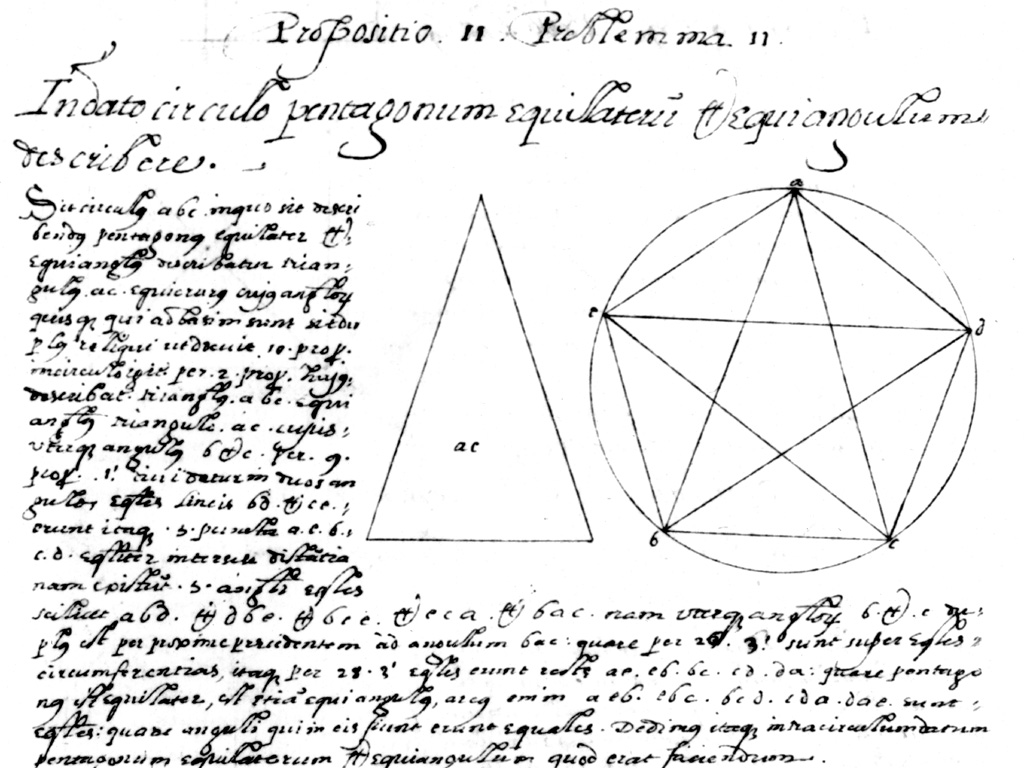 Propositio. 11. Problemma. 11.
In dato circulo pentagonum equilaterū et equiangulum
describere.
Sit circulus abc. inquo sit descri
bendus pentagonus equilater et
equiangulus describatur trian-
gulus ac. equicrurus cujus angulorum
quisque qui ad basim sunt sit du
plus reliqui ut docuit 10. prop.
incirculo per. 2. prop. hujus
describat. triangulus. abc. equi
angulus triangulo. ac. cujus
uterque angulus b et c. per. 9.
prop. 1. dividatur in duos an
gulos equales lineis bd. et ce.
erunt itaque. 5. puncta a.e.b.
c.d. equaliter inter se distantia
nam 5. anguli equales
scilicet abd. et dbc. et bce. et eca. et bac. nam uterque angulorum b. et. c du-
plus est per proxime precidentem ad angulum bac: quare per 26. 3. sunt super equales
circumferentias, itaque per 28. 3. equales erunt recte ae. eb. bc. cd. da: quare pentago
nus est equilater, est etiam equiangulus, arcus enim aeb. ebc. bcd. cda. dae. sunt
equales: quare anguli qui in eis fiunt erunt equales. Dedimus itaque intra circulum datum
pentagonum equilaterum et equiangulum quod erat faciendum.
ac
a
e
d
b
c